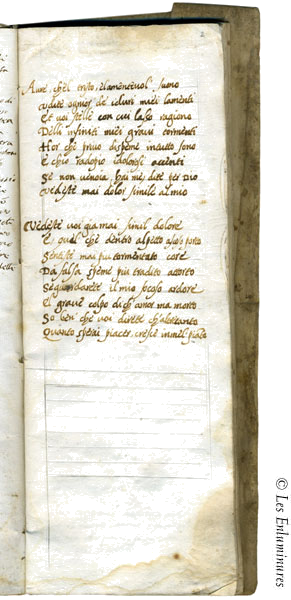 2
Aure, ch'el tristo, e lamentevol' suono
Udite ognor de i duri miei lamenti
Et voi stelle con cui lasso ragiono
Delli infiniti miei gravi tormenti
Hor che privo di speme in tutto sono
E ch'io radopio i dolorosi accenti
Se non v'annoia, hai me, dite per Dio
Vedeste mai dolor simile al mio
Vedeste voi gia mai simil dolore
A quel che dentro al petto ascoso porto
Sentiste mai piu tormentato core
Da falsa speme piu tradito a torto
Se guardarete il mio foco ardore
E grave colpo di ch' amor m'ha morto
So ben che voi direte ch'altretanto
Quanto speri piacer, cresce in me il pianto
© Les Enluminures